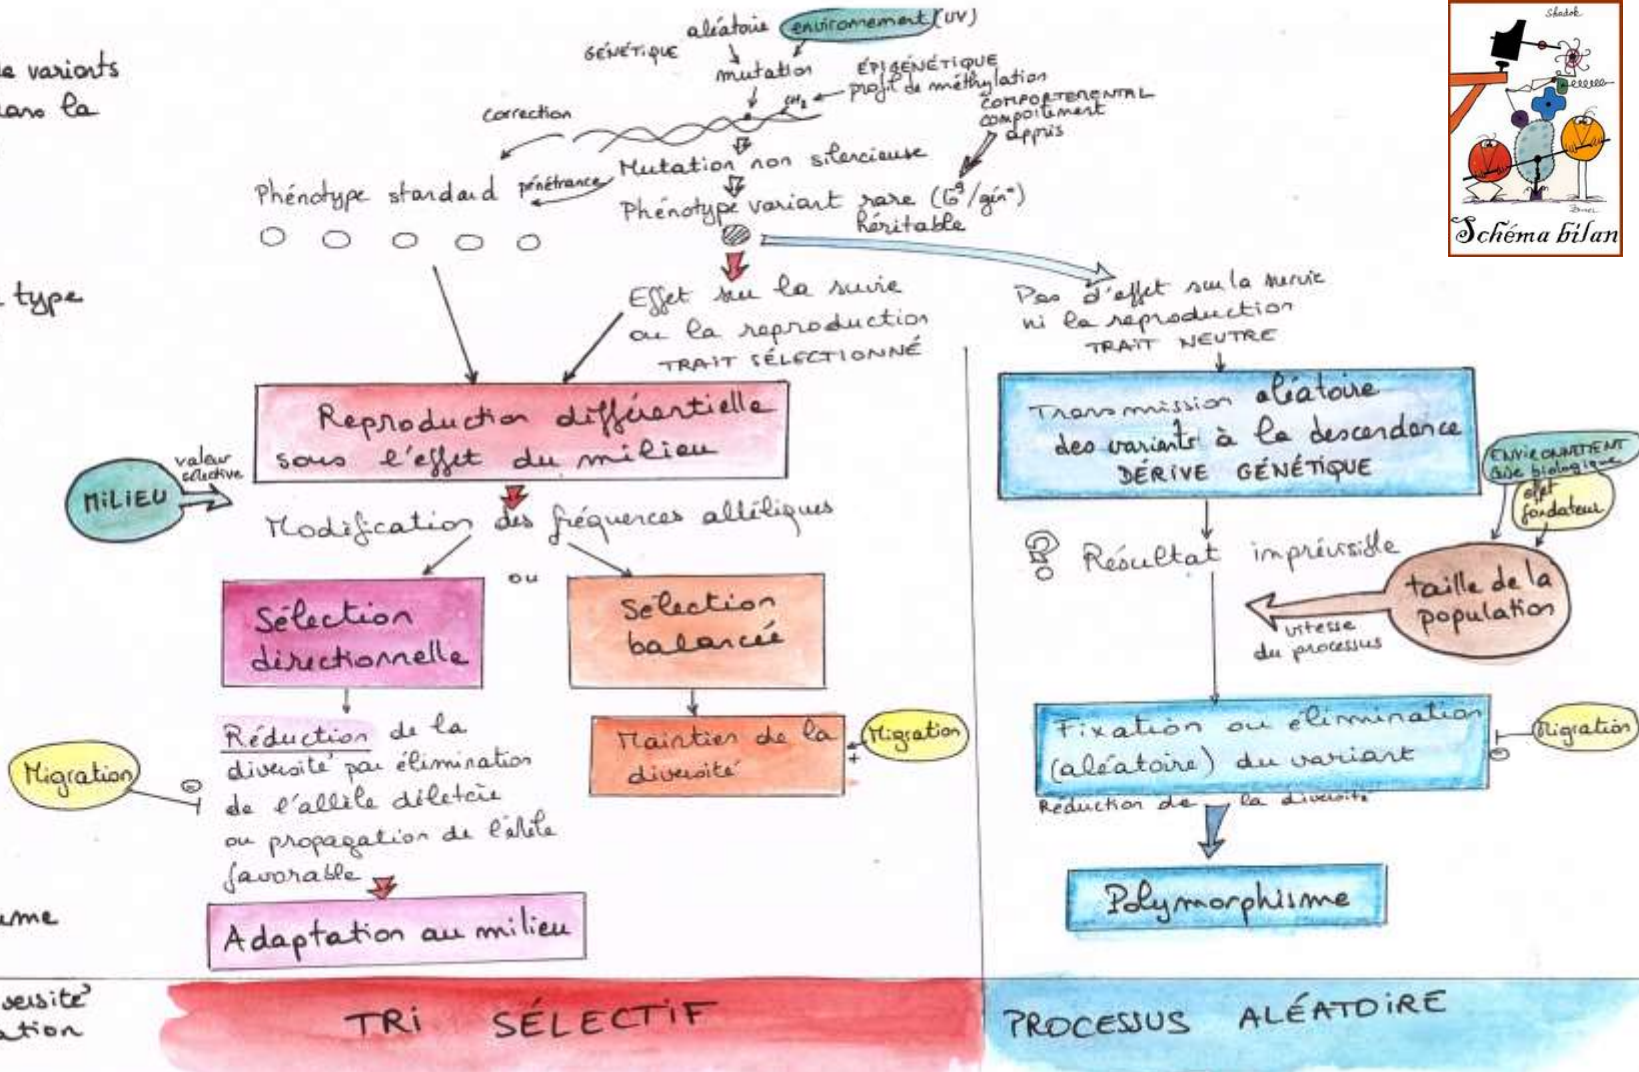 Shadok
Schéma bilan
aléatoire environnement (UV)
GÉNÉTIQUE
mutation
ÉPIGÉNÉTIQUE
profil de méthylation
CH3
COMPORTEMENTAL
comportement
appris
correction
Mutation non silencieuse
pénétrance
Phénotype standard
Phénotype variant rare
héritable
e variants
dans la
type
Effet sur la survie
ou la reproduction
TRAIT SÉLECTIONNÉ
Pas d'effet sur la survie
ni la reproduction
TRAIT NEUTRE
Reproduction différentielle
sous l'effet du milieu
MILIEU
valeur
sélective
Modification des fréquences alléliques
ou
Sélection
directionnelle
Sélection
balancée
Réduction de la
diversité par élimination
de l'allèle délétère
ou propagation de l'allèle
favorable
Migration
⊖
Maintien de la
diversité
Migration
+
Adaptation au milieu
Transmission aléatoire
des variants à la descendance
DÉRIVE GÉNÉTIQUE
ENVIRONNEMENT
crise biologique
effet
fondateur
? Résultat imprévisible
taille de la
population
vitesse
du processus
Fixation ou élimination
(aléatoire) du variant
Migration
⊖
Réduction de la diversité
Polymorphisme
TRI SÉLECTIF
PROCESSUS ALÉATOIRE
ume
versité
ation